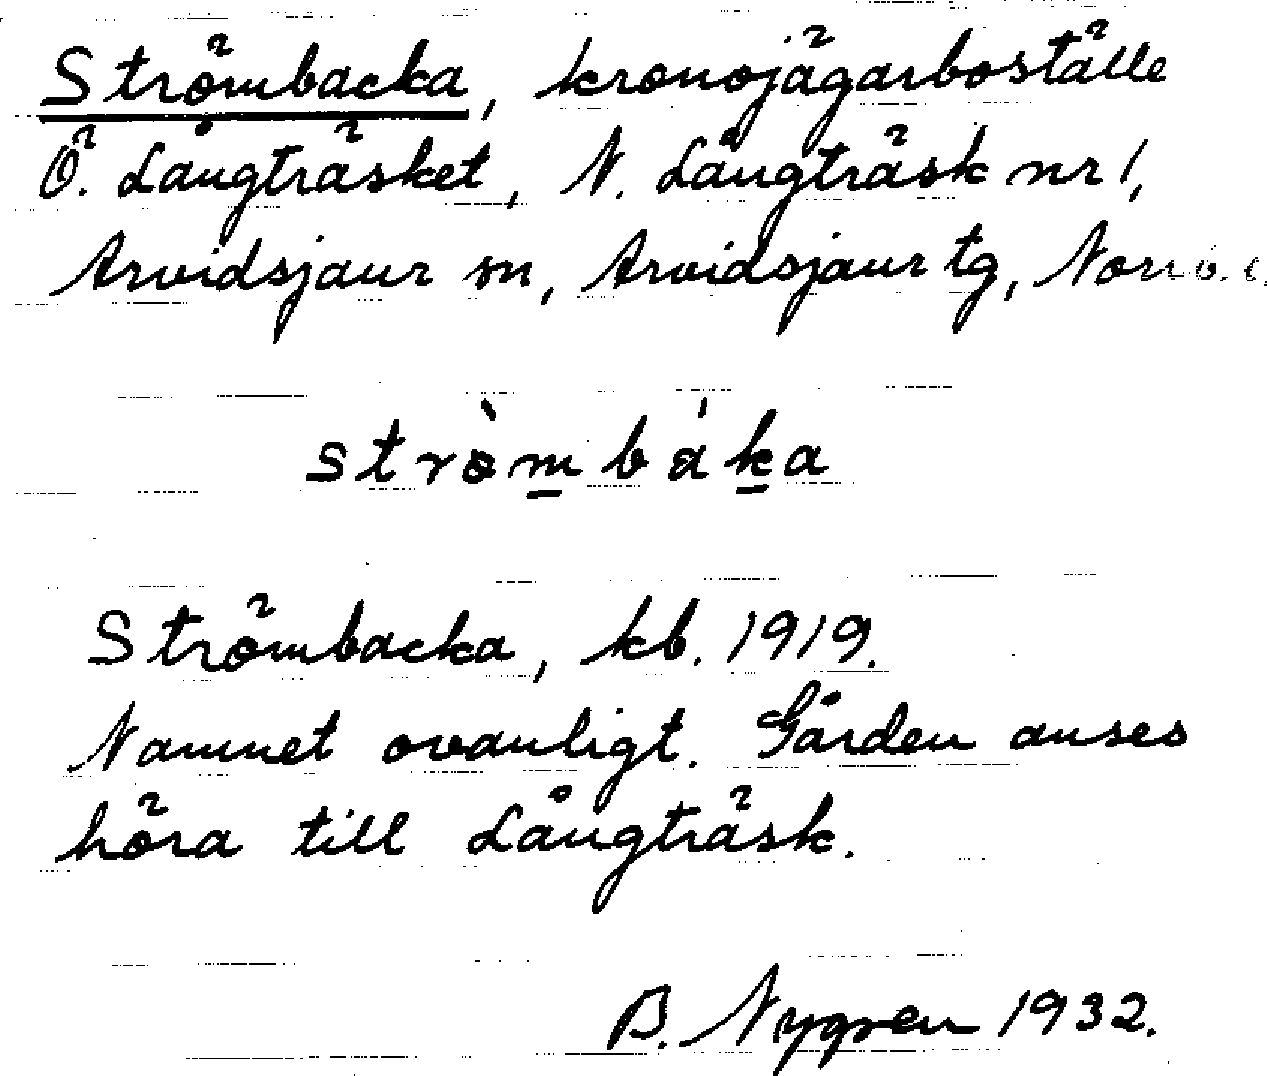 Strömbacka, kronojägarboställe
Ö. Långträsket, N. Långträsk nr 1,
Arvidsjaur sn, Arvidsjaur tg, Norrb. l.
strò̀m̲ bák̲a
Strömbacka, kb. 1919.
Namnet ovanligt. Gården anses
höra till Långträsk.
B. Nygren 1932.